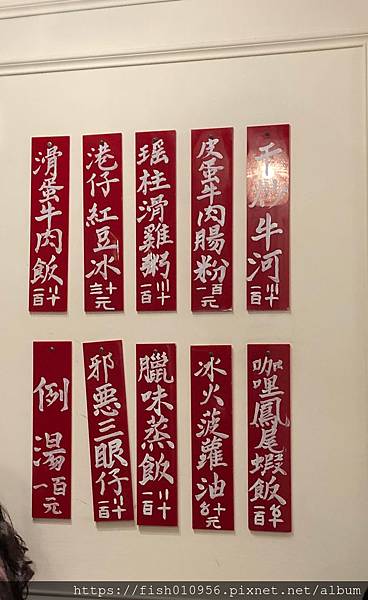 干炒牛河
一百〣十
皮蛋牛肉腸粉
一百元
瑶柱滑雞粥
一百〣十
港仔紅豆冰
十元
滑蛋牛肉飯
一百〣十
咖哩鳳尾蝦飯
一百十
冰火菠蘿油
十元
臘味蒸飯
一百〣十
邪惡三眼仔
一百〣十
例湯
一百元
https://fish010956.pixnet.net/album